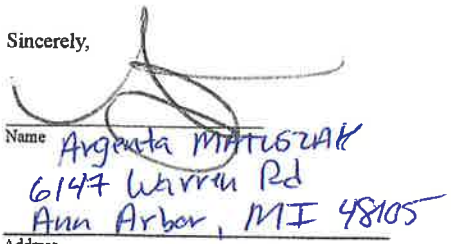 Sincerely,
Name Argenta
6147 Warren Rd
Ann Arbor, MI 48105
Address